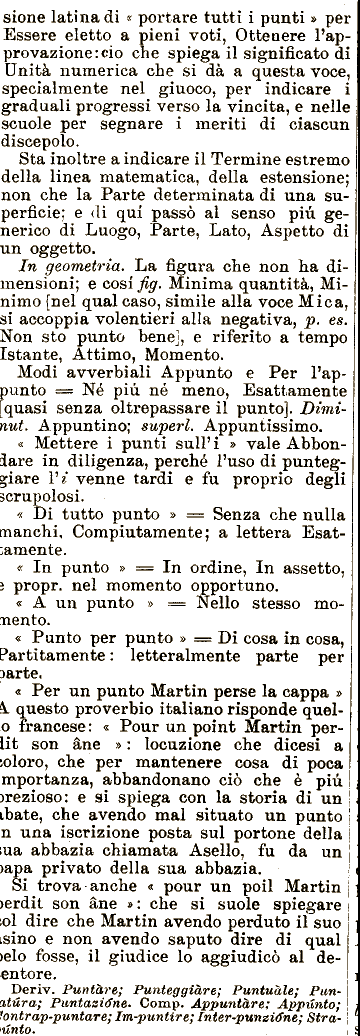 sione latina di « portare tutti i punti » per
Essere eletto a pieni voti, Ottenere l'ap-
provazione: cio che spiega il significato di
Unità numerica che si dà a questa voce,
specialmente nel giuoco, per indicare i
graduali progressi verso la vincita, e nelle
scuole per segnare i meriti di ciascun
discepolo.
Sta inoltre a indicare il Termine estremo
della linea matematica, della estensione;
non che la Parte determinata di una su-
perficie; e di quí passò al senso piú ge-
nerico di Luogo, Parte, Lato, Aspetto di
un oggetto.
In geometria. La figura che non ha di-
mensioni; e cosí fig. Minima quantità, Mi-
nimo [nel qual caso, simile alla voce Mica,
si accoppia volentieri alla negativa, p. es.
Non sto punto bene], e riferito a tempo
Istante, Attimo, Momento.
Modi avverbiali Appunto e Per l'ap-
punto = Né piú né meno, Esattamente
[quasi senza oltrepassare il punto]. Dimi-
nut. Appuntino; superl. Appuntissimo.
« Mettere i punti sull'i » vale Abbon-
dare in diligenza, perché l'uso di punteg-
giare l'i venne tardi e fu proprio degli
scrupolosi.
« Di tutto punto » = Senza che nulla
manchi, Compiutamente; a lettera Esat-
tamente.
« In punto » = In ordine, In assetto,
e propr. nel momento opportuno.
« A un punto » = Nello stesso mo-
mento.
« Punto per punto » = Di cosa in cosa,
Partitamente: letteralmente parte per
parte.
« Per un punto Martin perse la cappa »
A questo proverbio italiano risponde quel-
lo francese: « Pour un point Martin per-
dit son âne »: locuzione che dicesi a
coloro, che per mantenere cosa di poca
importanza, abbandonano ciò che è piú
prezioso: e si spiega con la storia di un
abate, che avendo mal situato un punto
in una iscrizione posta sul portone della
sua abbazia chiamata Asello, fu da un
papa privato della sua abbazia.
Si trova anche « pour un poil Martin
perdit son âne »: che si suole spiegare
col dire che Martin avendo perduto il suo
asino e non avendo saputo dire di qual
pelo fosse, il giudice lo aggiudicò al de-
tentore.
Deriv. Puntàre; Punteggiàre; Puntuàle; Pun-
tatúra; Puntazióne. Comp. Appuntàre; Appúnto;
Contrap-puntare; Im-puntíre; Inter-punzióne; Stra-
púnto.